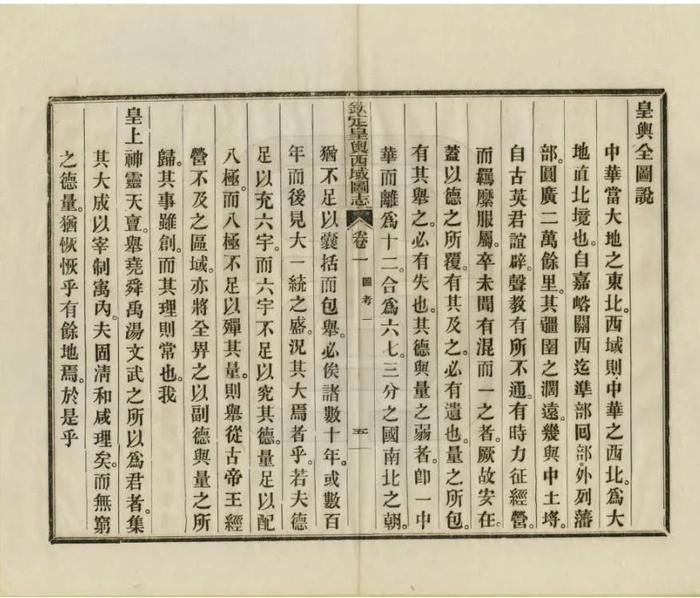 皇輿全圖說
中華當大地之東北。西域則中華之西北。爲大
地直北境也。自嘉峪關西迄準部回部。外列藩
部。圓廣二萬餘里。其疆圉之濶遠。幾與中土埒。
自古英君誼辟。聲教有所不通。有時力征經營。
而羈縻服屬。卒未聞有混而一之者。厥故安在。
蓋以德之所覆。有其及之。必有遺也。量之所包。
有其舉之。必有失也。其德與量之弱者。卽一中
華而離爲十二。合爲六七。三分之國。南北之朝。
欽定皇輿西域圖志 卷一 圖考一 五
猶不足以囊括而包舉。必俟諸數十年。或數百
年而後見大一統之盛。況其大焉者乎。若夫德
足以充六宇。而六宇不足以究其德。量足以配
八極。而八極不足以殫其量。則舉從古帝王經
營不及之區域。亦將全畀之以副德與量之所
歸。其事雖創。而其理則常也。我
皇上神靈天亶。舉堯舜禹湯文武之所以爲君者。集
其大成以宰制寓內。夫固淸和咸理矣。而無窮
之德量。猶恢恢乎有餘地焉。於是乎